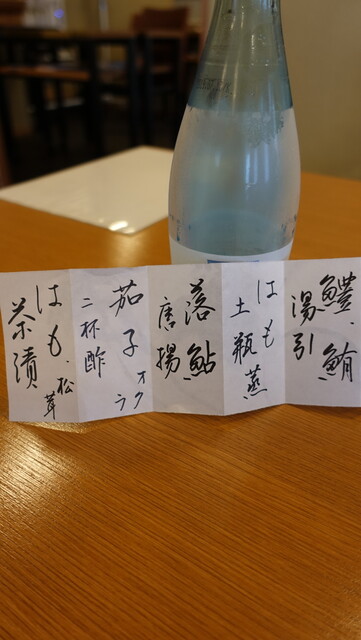 鱧、鮪
湯引
はも
土瓶蒸
落鮎
唐揚
茄子オクラ
二杯酢
はも、松茸
茶漬